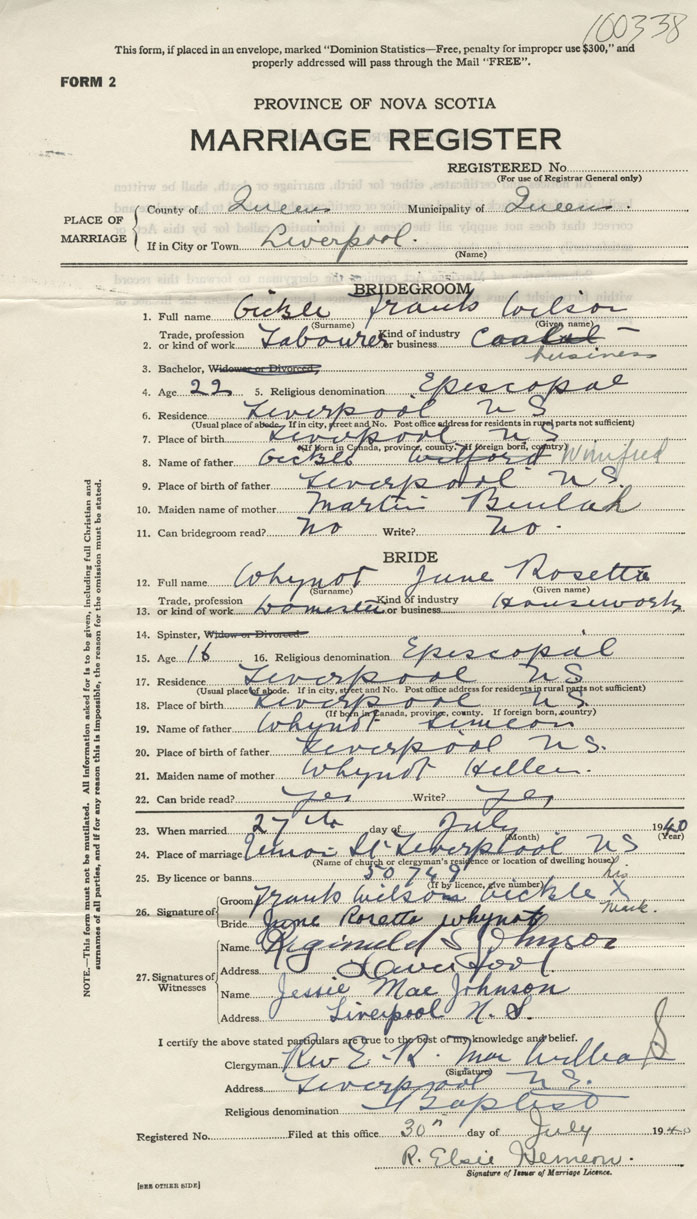 100338
This form, if placed in an envelope, marked "Dominion Statistics—Free, penalty for improper use $300," and
properly addressed will pass through the Mail "FREE".
FORM 2
PROVINCE OF NOVA SCOTIA
MARRIAGE REGISTER
REGISTERED No.
(For use of Registrar General only)
PLACE OF MARRIAGE
County of Queens Municipality of Queens.
If in City or Town Liverpool.
(Name)
BRIDEGROOM
1. Full name Wilson Frank
(Surname) (Given name)
2. Trade, profession or kind of work Labourer Kind of industry or business
business
3. Bachelor, Widower or Divorced,
4. Age 22 5. Religious denomination Episcopal
6. Residence Liverpool N S
(Usual place of abode. If in city, street and No. Post office address for residents in rural parts not sufficient)
7. Place of birth Liverpool N S
(If born in Canada, province, county. If foreign born, country)
8. Name of father Winifred
9. Place of birth of father Liverpool N S.
10. Maiden name of mother Martin Beulah
11. Can bridegroom read? No Write? No.
BRIDE
12. Full name Whynot June Rosetta
(Surname) (Given name)
13. Trade, profession or kind of work Domestic Kind of industry or business Housework
14. Spinster, Widow or Divorced.
15. Age 16 16. Religious denomination Episcopal
17. Residence Liverpool N S
(Usual place of abode. If in city, street and No. Post office address for residents in rural parts not sufficient)
18. Place of birth Liverpool N S.
(If born in Canada, province, county. If foreign born, country)
19. Name of father Whynot Simeon
20. Place of birth of father Liverpool N S.
21. Maiden name of mother Whynot Hellen.
22. Can bride read? yes Write? yes
23. When married 27th day of July 1940
(Month) (Year)
24. Place of marriage Union St Liverpool N S
(Name of church or clergyman's residence or location of dwelling house)
25. By licence or banns 50749
(If by licence, give number)
his
26. Signature of Groom Frank Wilson X
Mark.
Bride June Rosetta Whynot
27. Signatures of Witnesses
Name Reginald S Johnson
Address Liverpool
Name Jessie Mae Johnson
Address Liverpool N. S.
I certify the above stated particulars are true to the best of my knowledge and belief.
Clergyman Rev E. R.
(Signature)
Address Liverpool N S.
Religious denomination Baptist
Registered No. Filed at this office 30th day of July 1940
R. Elsie Hemeon.
Signature of Issuer of Marriage Licence.
[SEE OTHER SIDE]
NOTE.—This form must not be mutilated. All information asked for is to be given, including full Christian and
surnames of all parties, and if for any reason this is impossible, the reason for the omission must be stated.